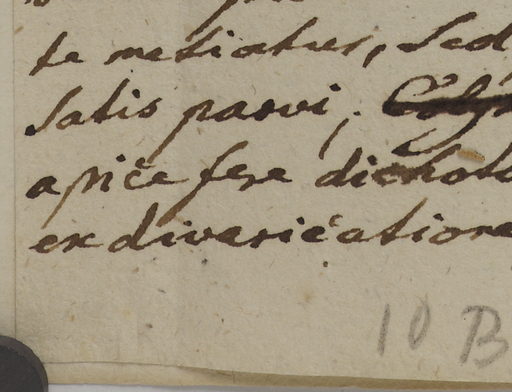 te metiatur, sed
satis parvi;
apice fere dichoto
ex divaricatione
10 B